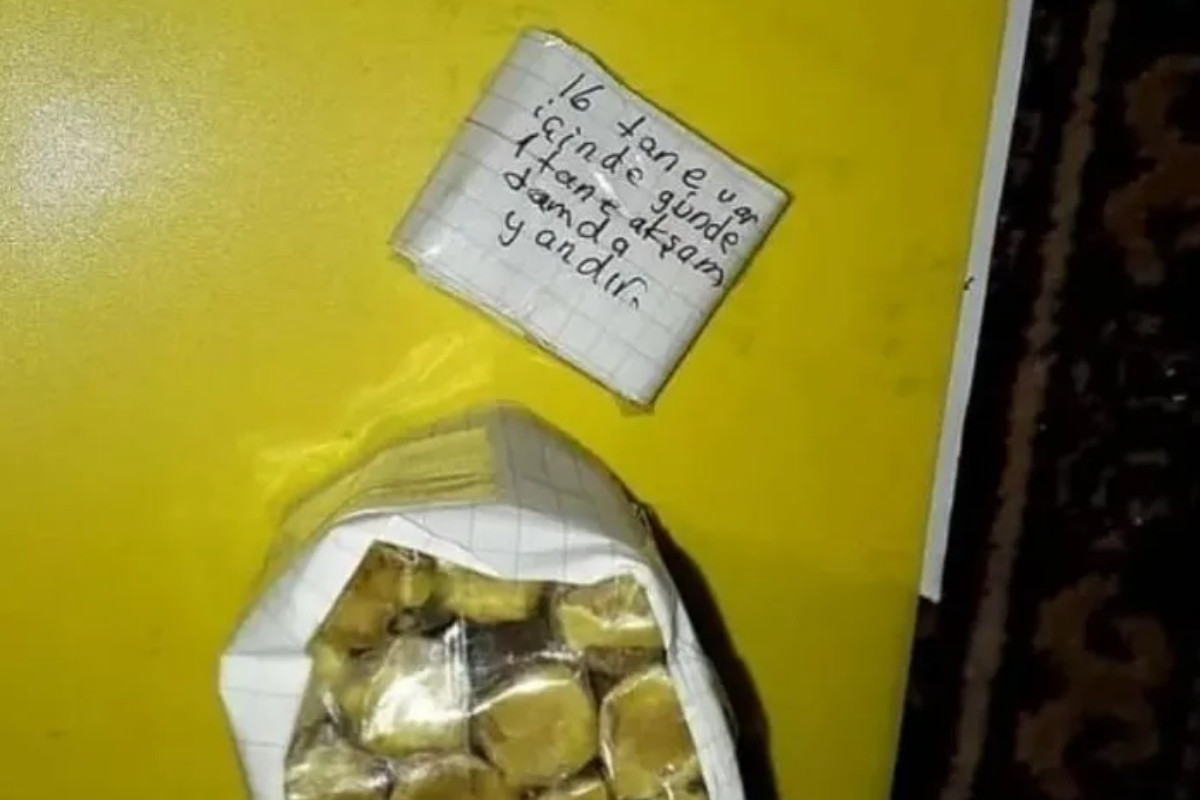 16 tane var
içinde günde
1 tane akşam
damda
yandır.